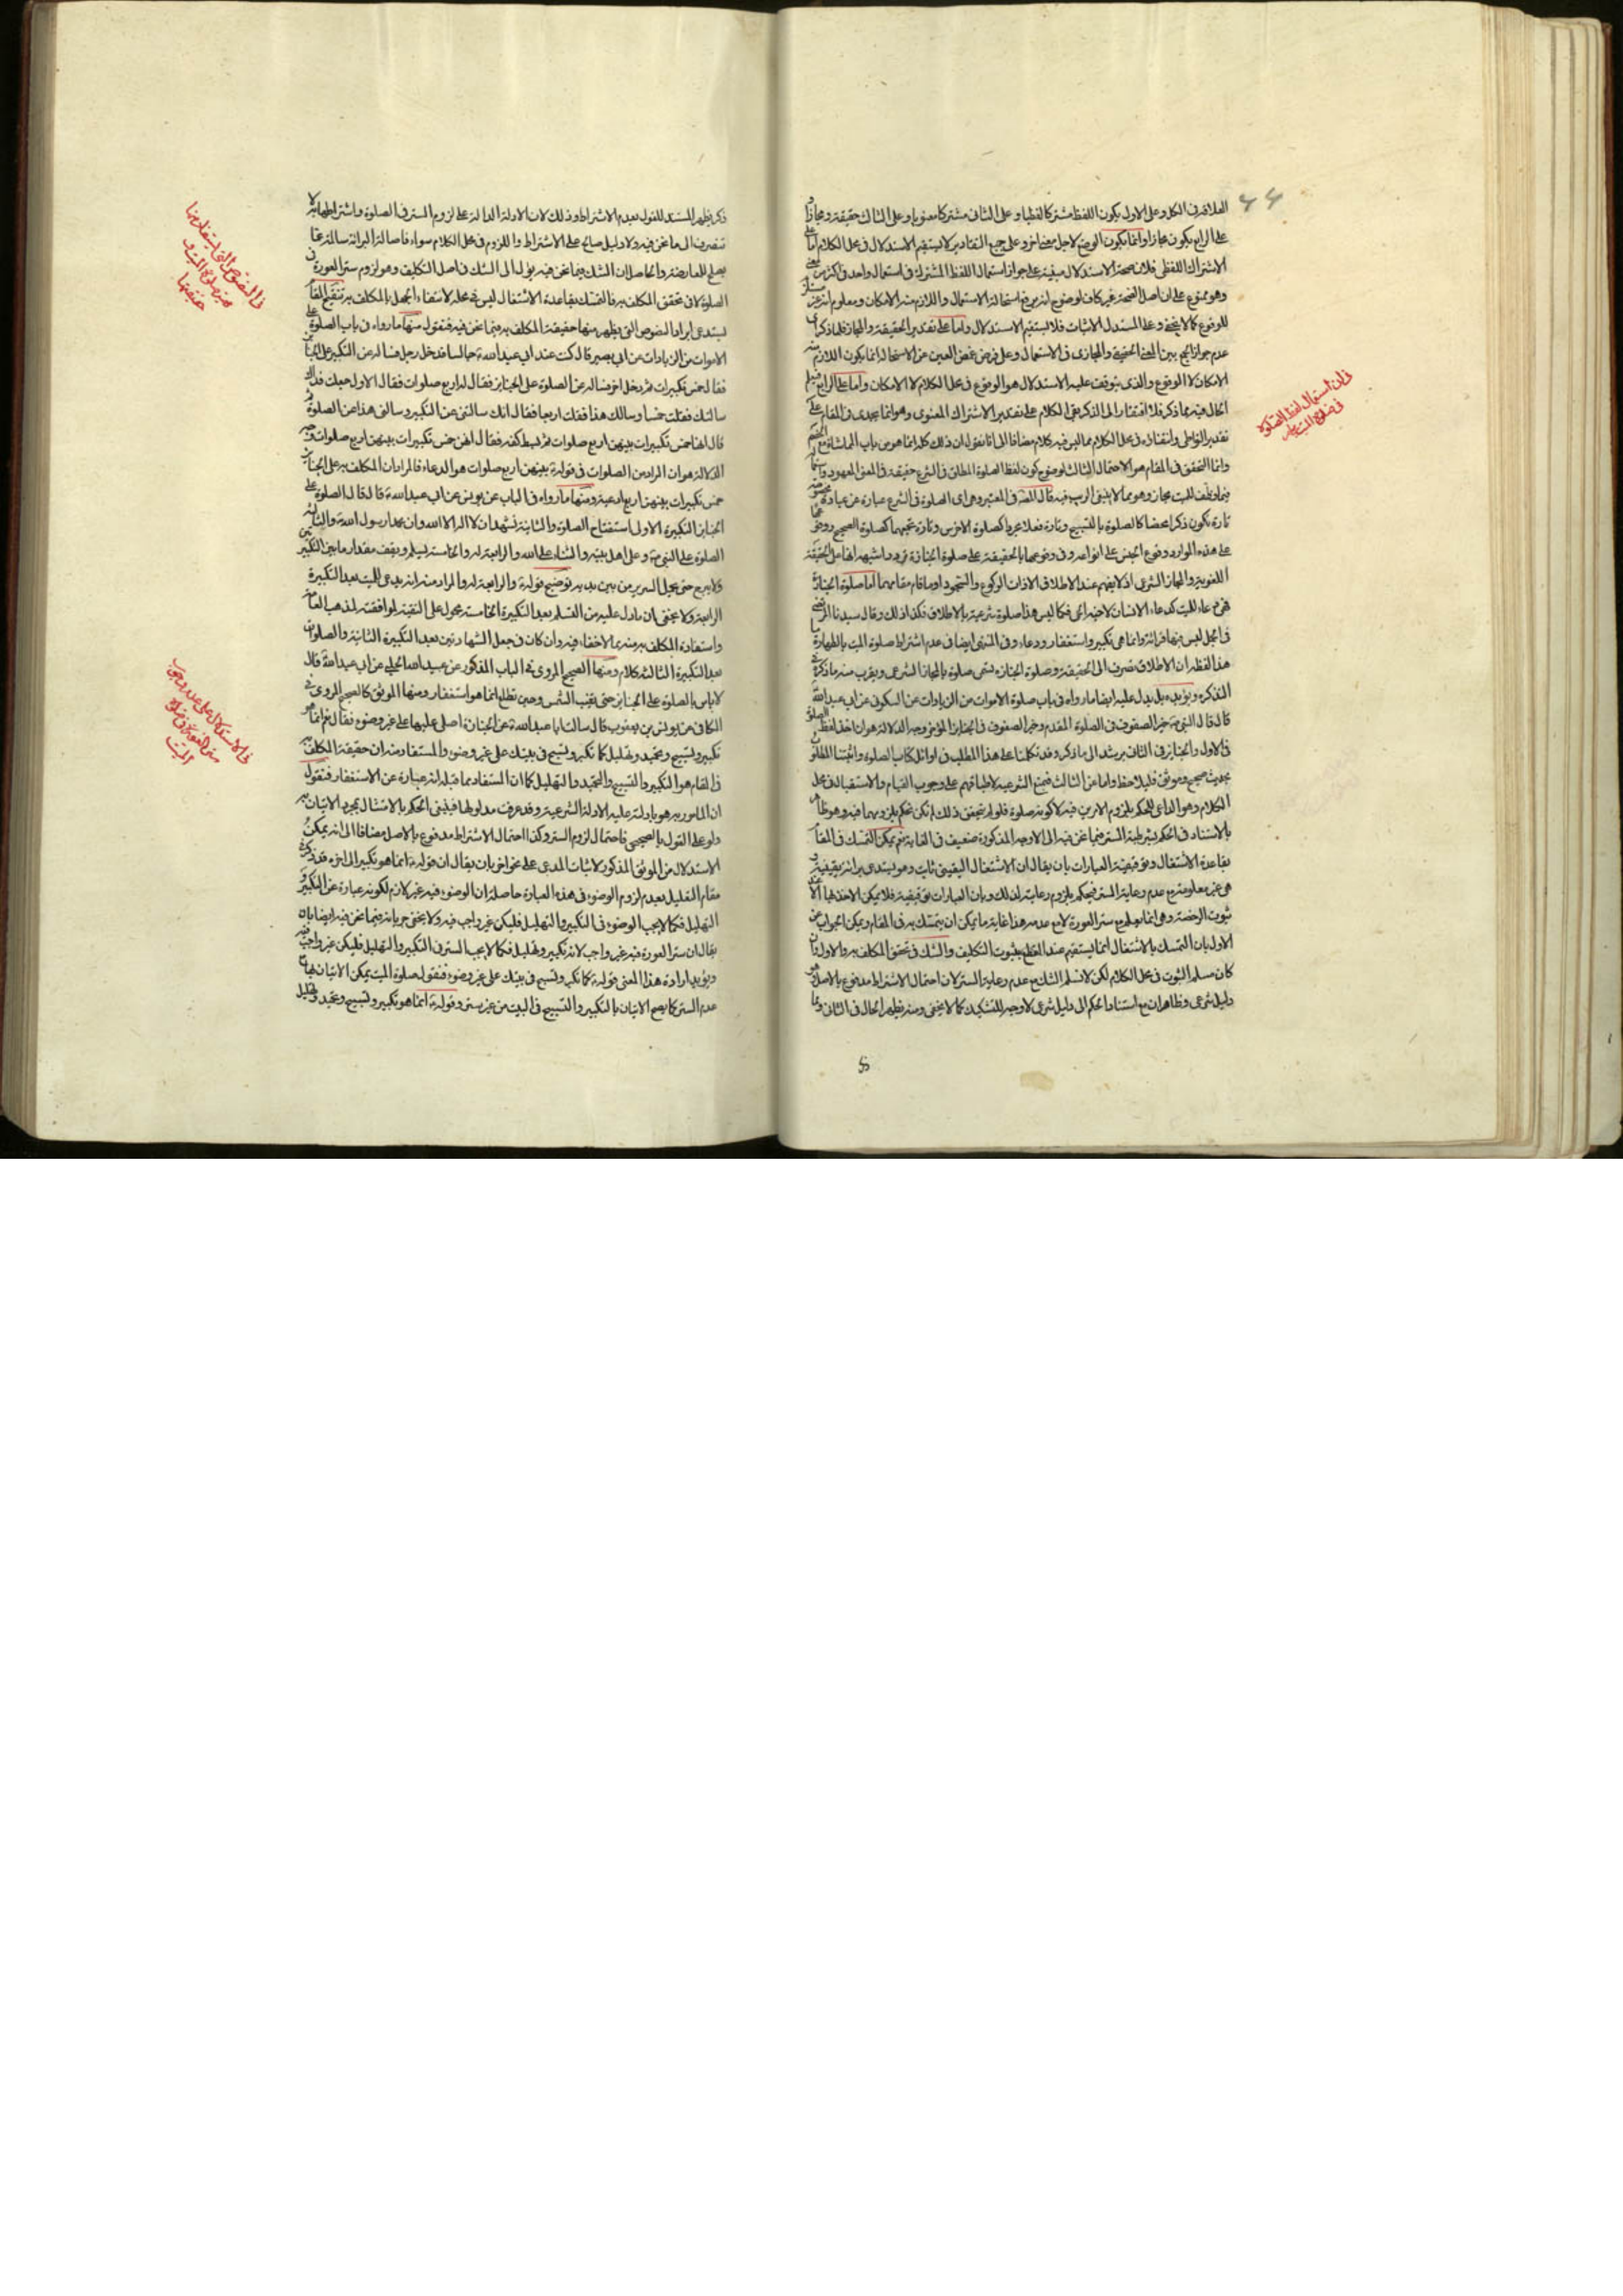 العلاقة في الكل وعلى الاول يكون اللفظ مشتركا لفظيا وعلى الثاني مشتركا معنويا وعلى الثالث حقيقة ومجازا و
على الرابع يكون مجازا وانما يكون الوضع لاجل معنى اخر وعلى جميع التقادير لا يستقيم الاستدلال في محل الكلام اما على
الاشتراك اللفظي فلان صحة الاستدلال مبنية على جواز استعمال اللفظ المشترك في استعمال واحد في اكثر من معنى
وهو ممنوع على ان اصل الصحة غير كاف لوضوح انه يرفع استحالة الاستعمال واللازم منه الامكان ومعلوم انه غير مستلزم
للوقوع كما لا يخفى وعلى المستدل الاثبات فلا يستقيم الاستدلال واما على تقدير الحقيقة والمجاز فلما ذكر اي
عدم جواز الجمع بين المعنى الحقيقي والمجازي في الاستعمال وعلى فرض غض العين عن الاستحالة انما يكون اللازم منه
الامكان لا الوقوع والذي يتوقف عليه الاستدلال هو الوقوع في محل الكلام لا الامكان واما على الرابع فيلم
الحال فيه مما ذكر فلا افتقار الى الذكر بقي الكلام على تقدير الاشتراك المعنوي وهو انما يجدي في المقام على
تقدير التواطي وانتفاؤه في محل الكلام مما ليس فيه كلام مضافا الى انا نقول ان ذلك كله انما هو من باب المماشاة مع الخصم
وانما التحقق في المقام هو الاحتمال الثالث لوضوح كون لفظ الصلوة المطلق في الشرع حقيقة في المعنى المعهود واستعمالها
فيما وظف للميت مجاز وهو مما لا ينبغي الريب فيه قال المصنف في المعتبر وهي اي الصلوة في الشرع عبارة عن عبادة مخصوصة
تارة تكون ذكرا محضا كالصلوة بالتسبيح وتارة فعلا مجردا كصلوة الاخرس وتارة تجمعهما كصلوة الصحيح ووقوعها
على هذه الموارد وقوع الجنس على انواعه وفي وقوعها بالحقيقة على صلوة الجنازة تردد اشبهه انها على الحقيقة
اللغوية والمجاز الشرعي اذ لا يفهم عند الاطلاق الا ذات الركوع والسجود او ما قام مقامهما اما صلوة الجنازة
فهي دعاء للميت كدعاء الانسان لاخيه الحي فكما ليس هذا صلوة شرعية بالاطلاق فكذا ذلك وقال سيدنا المرتضى
في الجمل ليس فيها قرائة وانما هي تكبير واستغفار ودعاء وفي المنتهى ايضا في عدم اشتراط صلوة الميت بالطهارة ما
هذا لفظه ان الاطلاق تصرف الى الحقيقة وصلوة الجنازة تسمى صلوة بالمجاز الشرعي ويقرب منه ما ذكره في
التذكرة ويؤيده بل يدل عليه ايضا ما رواه في باب صلوة الاموات من الزيادات عن السكوني عن ابي عبد الله
قال قال النبي ص خير الصفوف في الصلوة المقدم وخير الصفوف في الجنائز المؤخر وجه الدلالة هو ان اخذ لفظ الصلوة
في الاول والجنائز في الثاني يرشد الى ما ذكر وقد تكلمنا على هذا المطلب في اوائل كتاب الصلوة واثبتنا المطلوب
بحديث صحيح وموثق فليلاحظ واما عن الثالث فبمنع الشرعية لاطباقهم على وجوب القيام والاستقبال في محل
الكلام وهو الداعي للحكم بلزوم الامرين فيه لا كونه صلوة فلو لم يتحقق ذلك لم نكن نحكم بلزومهما فيه وهو ظاهر
بالاستناد في الحكم بشرطية الستر فيما نحن فيه الى الاوجه المذكورة ضعيف في الغاية نعم يمكن التمسك في المقام
بقاعدة الاشتغال وتوقيفية العبادات بان يقال ان الاشتغال اليقيني ثابت وهو يستدعي برائة يقينية و
هي غير معلومة مع عدم رعاية الستر فيحكم بلزوم رعايته لذلك وبان العبادات توقيفية فلا يمكن الاخذ بها الا عند
ثبوت الرخصة وهي انما يعلم مع ستر العورة لا مع عدمه هذا غاية ما يمكن ان يتمسك به في المقام ويمكن الجواب عن
الاول بان التمسك بالاشتغال انما يستقيم عند القطع بثبوت التكليف والشك في تحقق المكلف به والاول وان
كان مسلم الثبوت في محل الكلام لكن لا نسلم الشك مع عدم رعاية الستر لان احتمال الاشتراط مدفوع بالاصل وهو
دليل شرعي وظاهر ان مع استناد الحكم الى دليل شرعي لا وجه للتشكيك كما لا يخفى ومنه يظهر الحال في الثاني وبما
في ان استعمال لفظ الصلوة
في صلوة الميت مجاز
ذكر يظهر المستند للقول بعدم الاشتراط وذلك لان الادلة الدالة على لزوم الستر في الصلوة واشتراطها به لا
تنصرف الى ما نحن فيه ولا دليل صالح على الاشتراط واللزوم في محل الكلام سواه فاصالة البرائة سالمة عما
يصلح للمعارضة والحاصل ان الشك فيما نحن فيه يؤل الى الشك في اصل التكليف وهو لزوم ستر العورة في
الصلوة لا في تحقق المكلف به فالتمسك بقاعدة الاشتغال ليس في محله لانتفاء الجهل بالمكلف به تنقيح المقام
يستدعي ايراد النصوص التي يظهر منها حقيقة المكلف به فيما نحن فيه فنقول منها ما رواه في باب الصلوة على
الاموات من الزيادات عن ابي بصير قال كنت عند ابي عبد الله جالسا فدخل رجل فساله عن التكبير على الجنائز
فقال خمس تكبيرات ثم دخل اخر فساله عن الصلوة على الجنائز فقال له اربع صلوات فقال الاول جعلت فداك
سالتك فقلت خمسا وسالك هذا فقلت اربعا فقال انك سالتني عن التكبير وسالني هذا عن الصلوة ثم
قال انها خمس تكبيرات بينهن اربع صلوات ثم بسط كفه فقال انهن خمس تكبيرات بينهن اربع صلوات وجه
الدلالة هو ان المراد من الصلوات في قوله بينهن اربع صلوات هو الدعاء فالمراد ان المكلف به على الجنائز
خمس تكبيرات بينهن اربع ادعية ومنها ما رواه في الباب عن يونس عن ابي عبد الله قال قال الصلوة على
الجنائز التكبيرة الاولى استفتاح الصلوة والثانية تشهد ان لا اله الا الله وان محمدا رسول الله والثالثة
الصلوة على النبي ص وعلى اهل بيته والثناء على الله والرابعة له والخامسة يسلم ويقف مقدار ما بين التكبيرتين
ولا يبرح حتى يحمل السرير من بين يديه توضيح قوله والرابعة له والمراد منه انه يدعى للميت بعد التكبيرة
الرابعة ولا يخفى ان ما دل عليه من التسليم بعد التكبيرة الخامسة محمول على التقية لموافقته لمذهب العامة
واستفادة المكلف به منه مما لا خفاء فيه وان كان في جعل الشهادتين بعد التكبيرة الثانية والصلوات
بعد التكبيرة الثالثة كلام ومنها الصحيح المروي في الباب المذكور عن عبيد الله الحلبي عن ابي عبد الله قال
لا باس بالصلوة على الجنائز حتى تغيب الشمس وحين تطلع انما هو استغفار ومنها الموثق كالصحيح المروي في
الكافي عن يونس بن يعقوب قال سالت ابا عبد الله عن الجنازة اصلي عليها على غير وضوء فقال نعم انما هو
تكبير وتسبيح وتحميد وتهليل كما تكبر وتسبح في بيتك على غير وضوء والمستفاد منه ان حقيقة المكلف به
في المقام هو التكبير والتسبيح والتحميد والتهليل كما ان المستفاد مما قبله انه عبارة عن الاستغفار فنقول
ان المامور به هو ما دلت عليه الادلة الشرعية وقد عرفت مدلولها فينبغي الحكم بالامتثال بمجرد الاتيان به
ولو على القول بالصحيحي فاحتمال لزوم الستر وكذا احتمال الاشتراط مدفوع بالاصل مضافا الى انه يمكن
الاستدلال من الموثق المذكور لاثبات المدعى على نحو اخر بان يقال ان قوله انما هو تكبير الى اخره قد ذكر في
مقام التعليل بعدم لزوم الوضوء في هذه العبارة حاصله ان الوضوء فيه غير لازم لكونه عبارة عن التكبير و
التهليل فكما لا يجب الوضوء في التكبير والتهليل فليكن غير واجب فيه ولا يخفى جريانه فيما نحن فيه ايضا بان
يقال ان ستر العورة فيه غير واجب لانه تكبير وتهليل فكما لا يجب الستر في التكبير والتهليل فليكن غير واجب فيه
ويؤيد ارادة هذا المعنى قوله كما تكبر وتسبح في بيتك على غير وضوء فنقول صلوة الميت يمكن الاتيان بها مع
عدم الستر كما يصح الاتيان بالتكبير والتسبيح في البيت من غير ستر وقوله انما هو تكبير وتسبيح وتحميد وتهليل
في النصوص التي يستفاد منها
حقيقتها
في الاستدلال على عدم وجوب
ستر العورة في صلوة
الميت